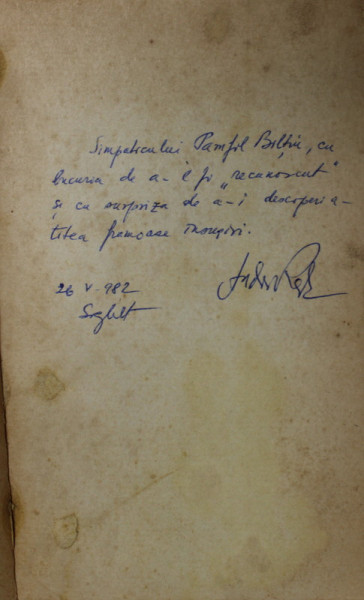 Simpaticului Pamfil Bilțiu, cu
bucuria de a-l fi „recunoscut"
și cu surpriza de a-i descoperi a-
tîtea frumoase însușiri.
26 V. 982
Sighet